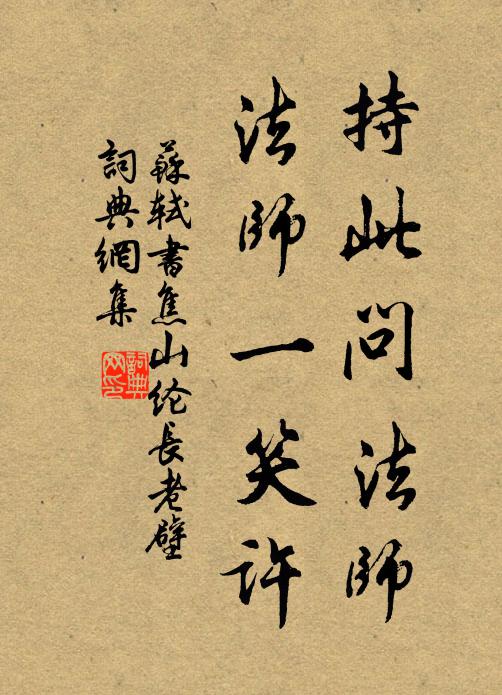 持此問法師
法師一笑許
蘇軾書焦山纶長老壁
詞典網集
詞典网印